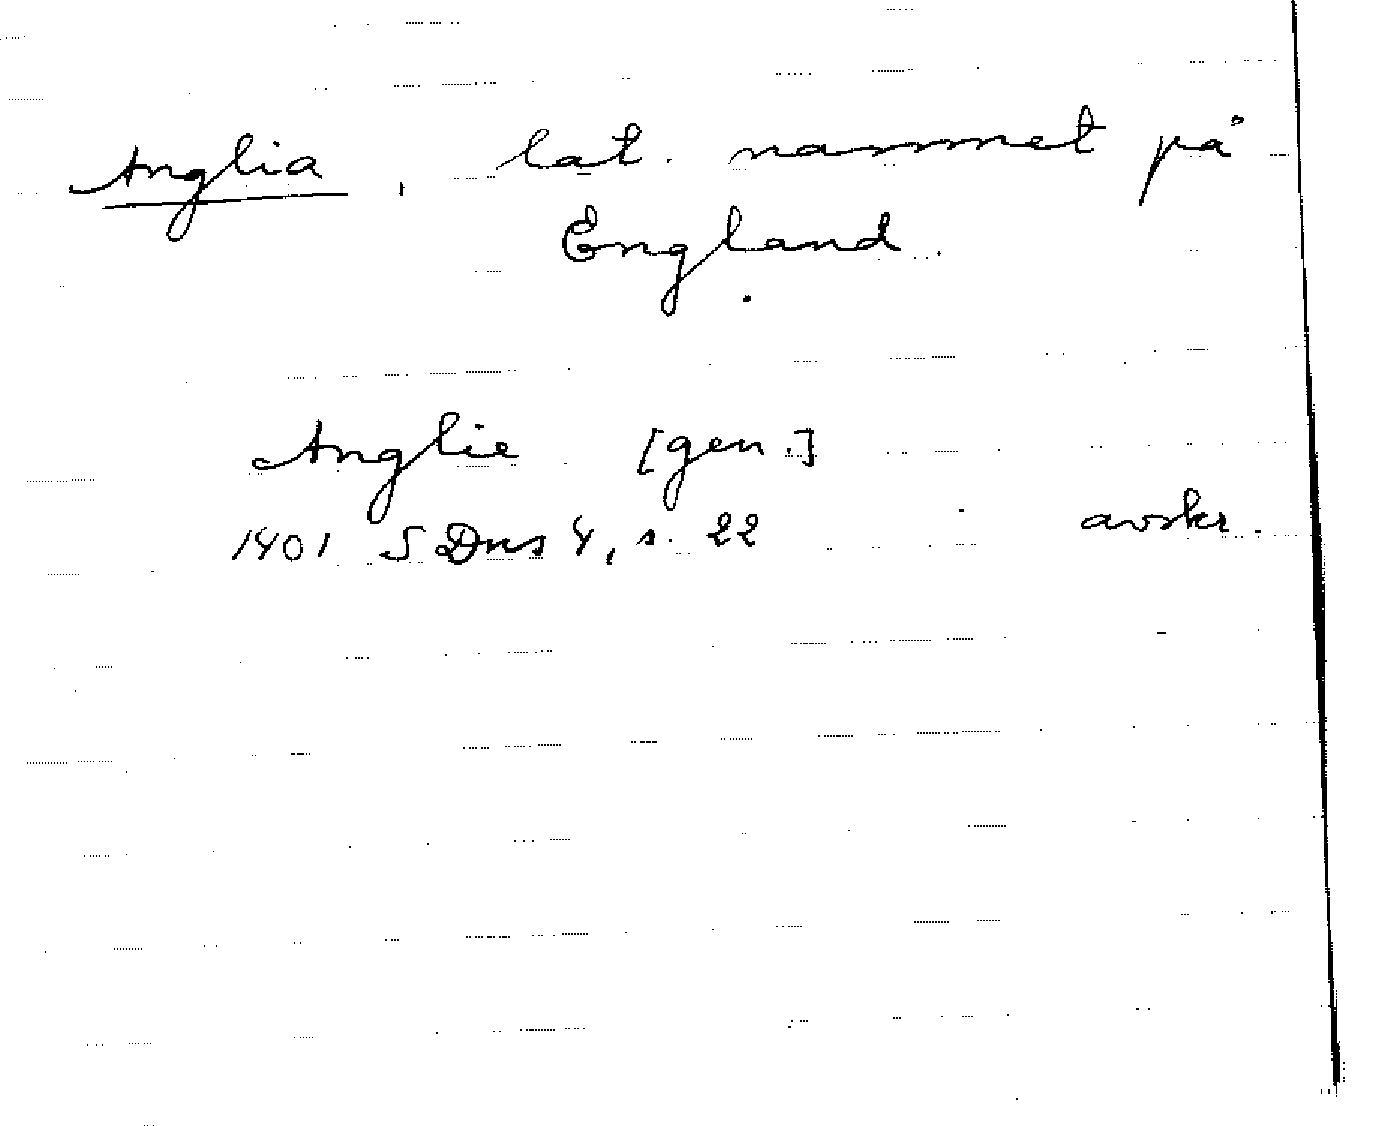 Anglia, lat. namnet på
England.
Anglie [gen.]
1401 SDns 4, s. 22 avskr.